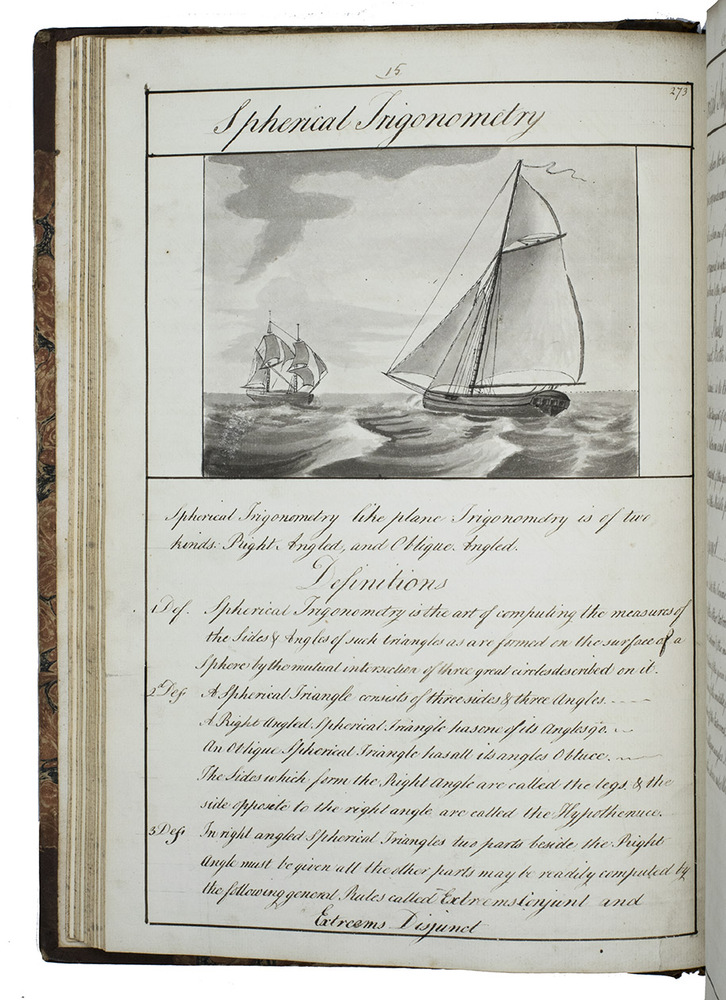 15
273
Spherical Trigonometry
Spherical Trigonometry like plane Trigonometry is of two
kinds: Right Angled, and Oblique Angled.
Definitions
1 Def. Spherical Trigonometry is the art of computing the measures of
the Sides & Angles of such triangles as are formed on the surface of a
Sphere by the mutual intersection of three great circles described on it.
2 Def A Spherical Triangle consists of three sides & three Angles.
A Right Angled Spherical Triangle has one of its Angles 90.
An Oblique Spherical Triangle has all its angles Obtuce.
The Sides which form the Right Angle are called the legs. & the
side opposite to the right angle are called the Hypothenuce.
3 Def In right angled Spherical Triangles two parts beside the Right
Angle must be given all the other parts may be readily computed by
the following general Rules called Extrems Conjunt and
Extreems Disjunct